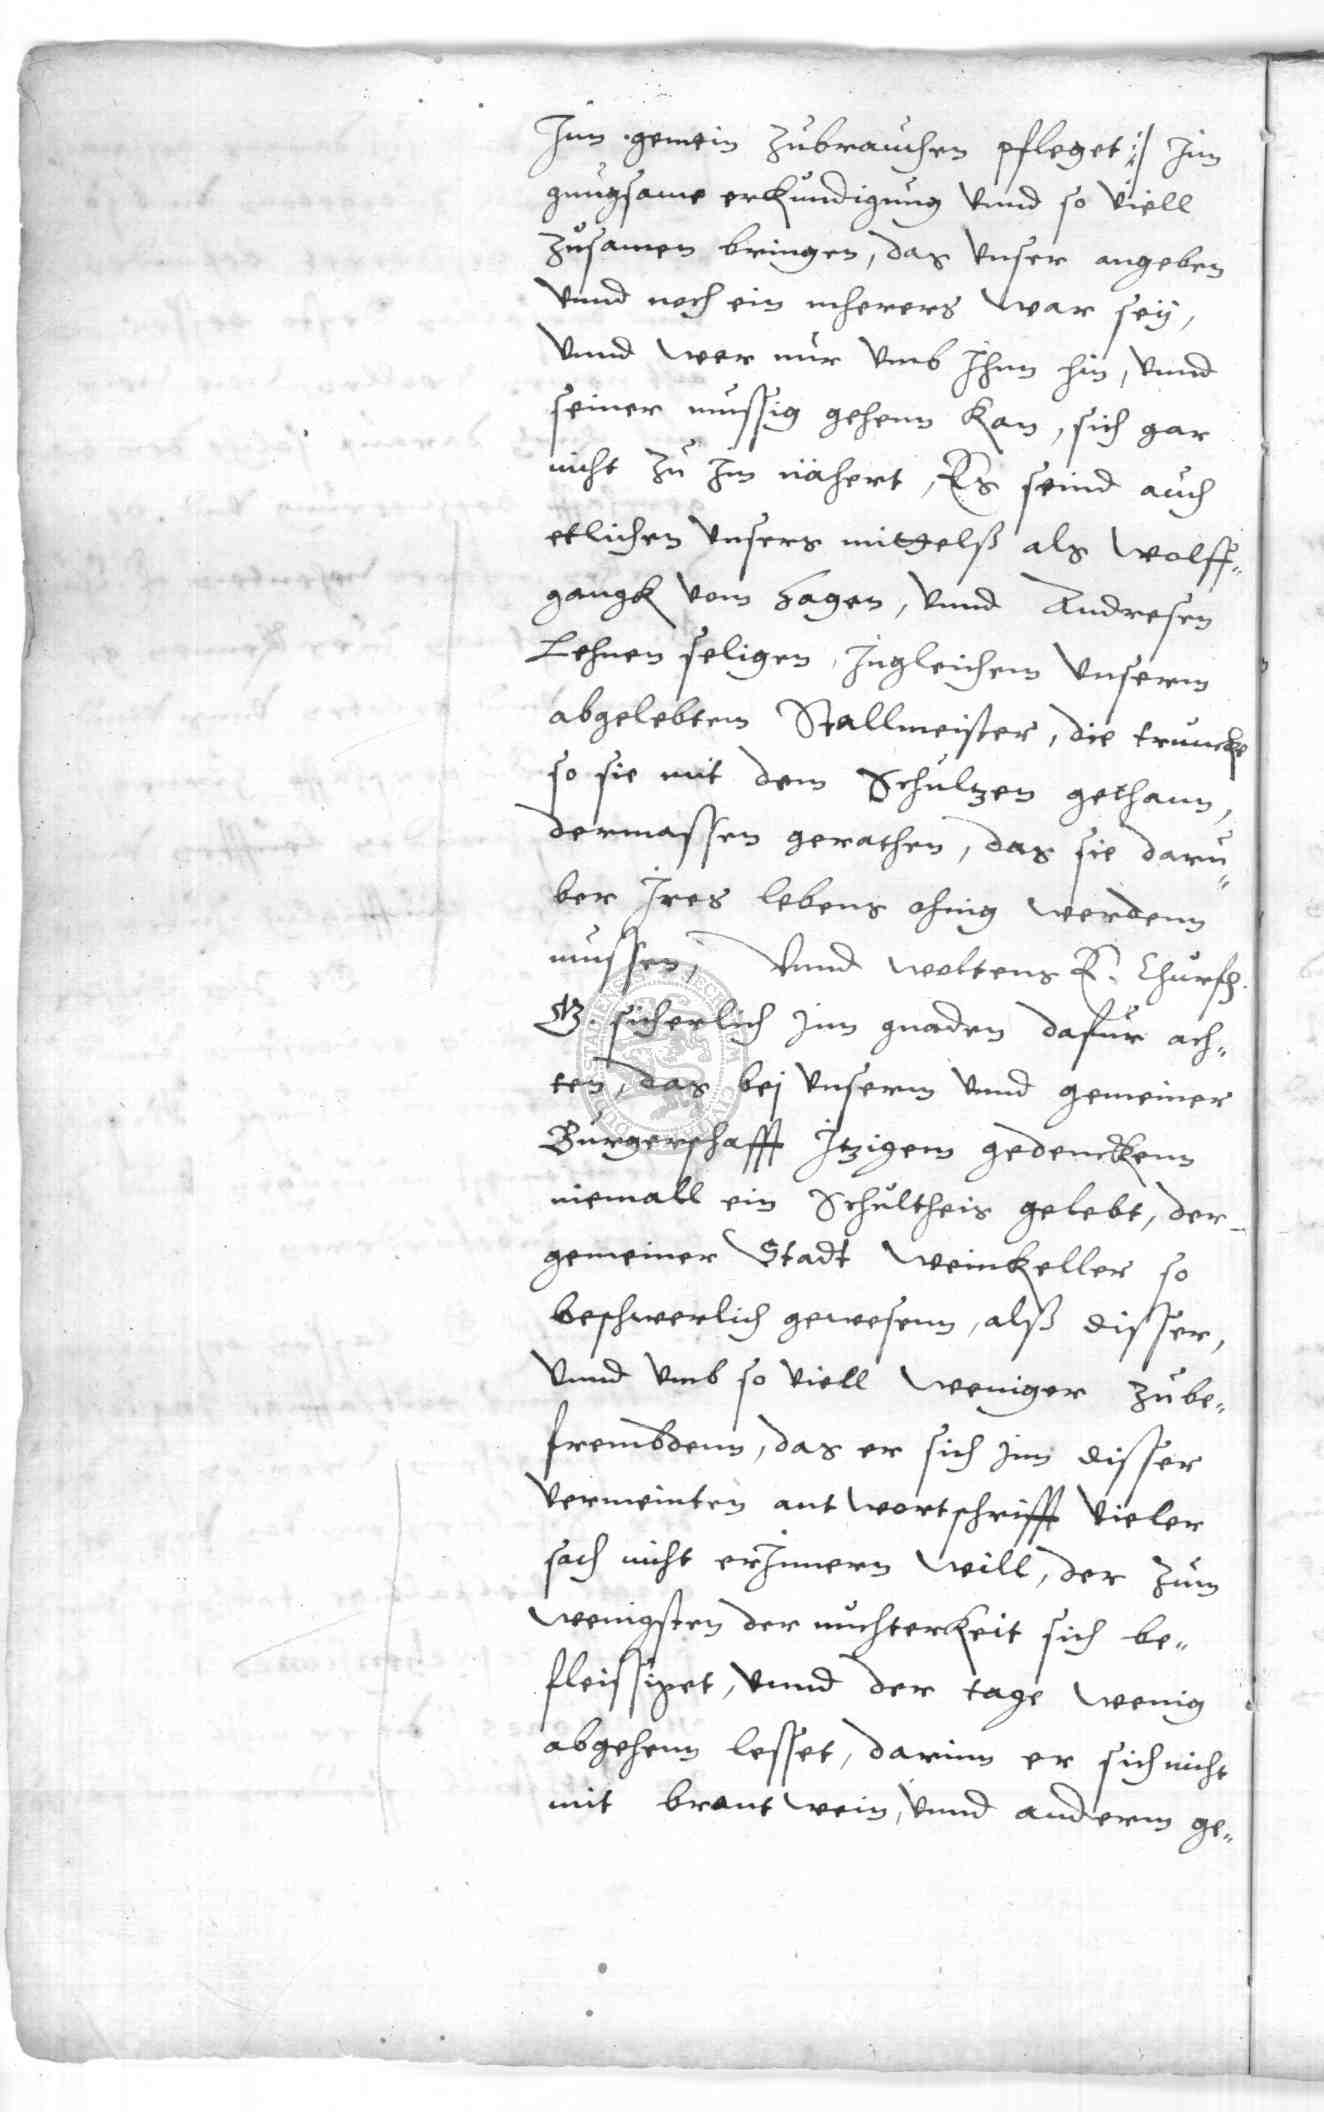 Inn gemein zubrauchen pfleget :/ Inn
gnugsame erkundigung vnnd so viell
zusamen bringen, das vnser angeben
vnnd noch ein mherers war seÿ,
vnnd wer nur vmb Ihnn hin, vnnd
seiner mussig gehenn kan, sich gar
nicht zu Im nähert, Es seind auch
etlichen vnsers mittelß als Wolff„
gangk vom Hagen, vnnd Andresen
Lehnen seligen, Ingleichem vnserm
abgelebtem Stallmeister, die truncke
so sie mit dem Schultzen gethann,
dermassen gerathen, das sie daru„
ber Ires lebens ohnig werdenn
mussen, Vnnd woltens E. Churf.
G. sicherlich Inn gnaden dafur ach„
ten, das bej vnserm vnnd gemeiner
Burgerschafft Itzigem gedenckenn
niemall ein Schultheis gelebt, der
gemeiner Stadt Weinkeller so
beschwerlich gewesenn, alß disser,
vnnd vmb so viell weniger zube„
frembdenn, das er sich Inn disser
vermeinten antwortschrifft vieler
sach nicht erInnern will, der zum
wenigsten der nuchterkeit sich be„
fleissiget, vnnd der tage wenig
abgehenn lesset, darinn er sich nicht
mit brantwein, vnnd anderm ge„
SIGILLUM CIVI